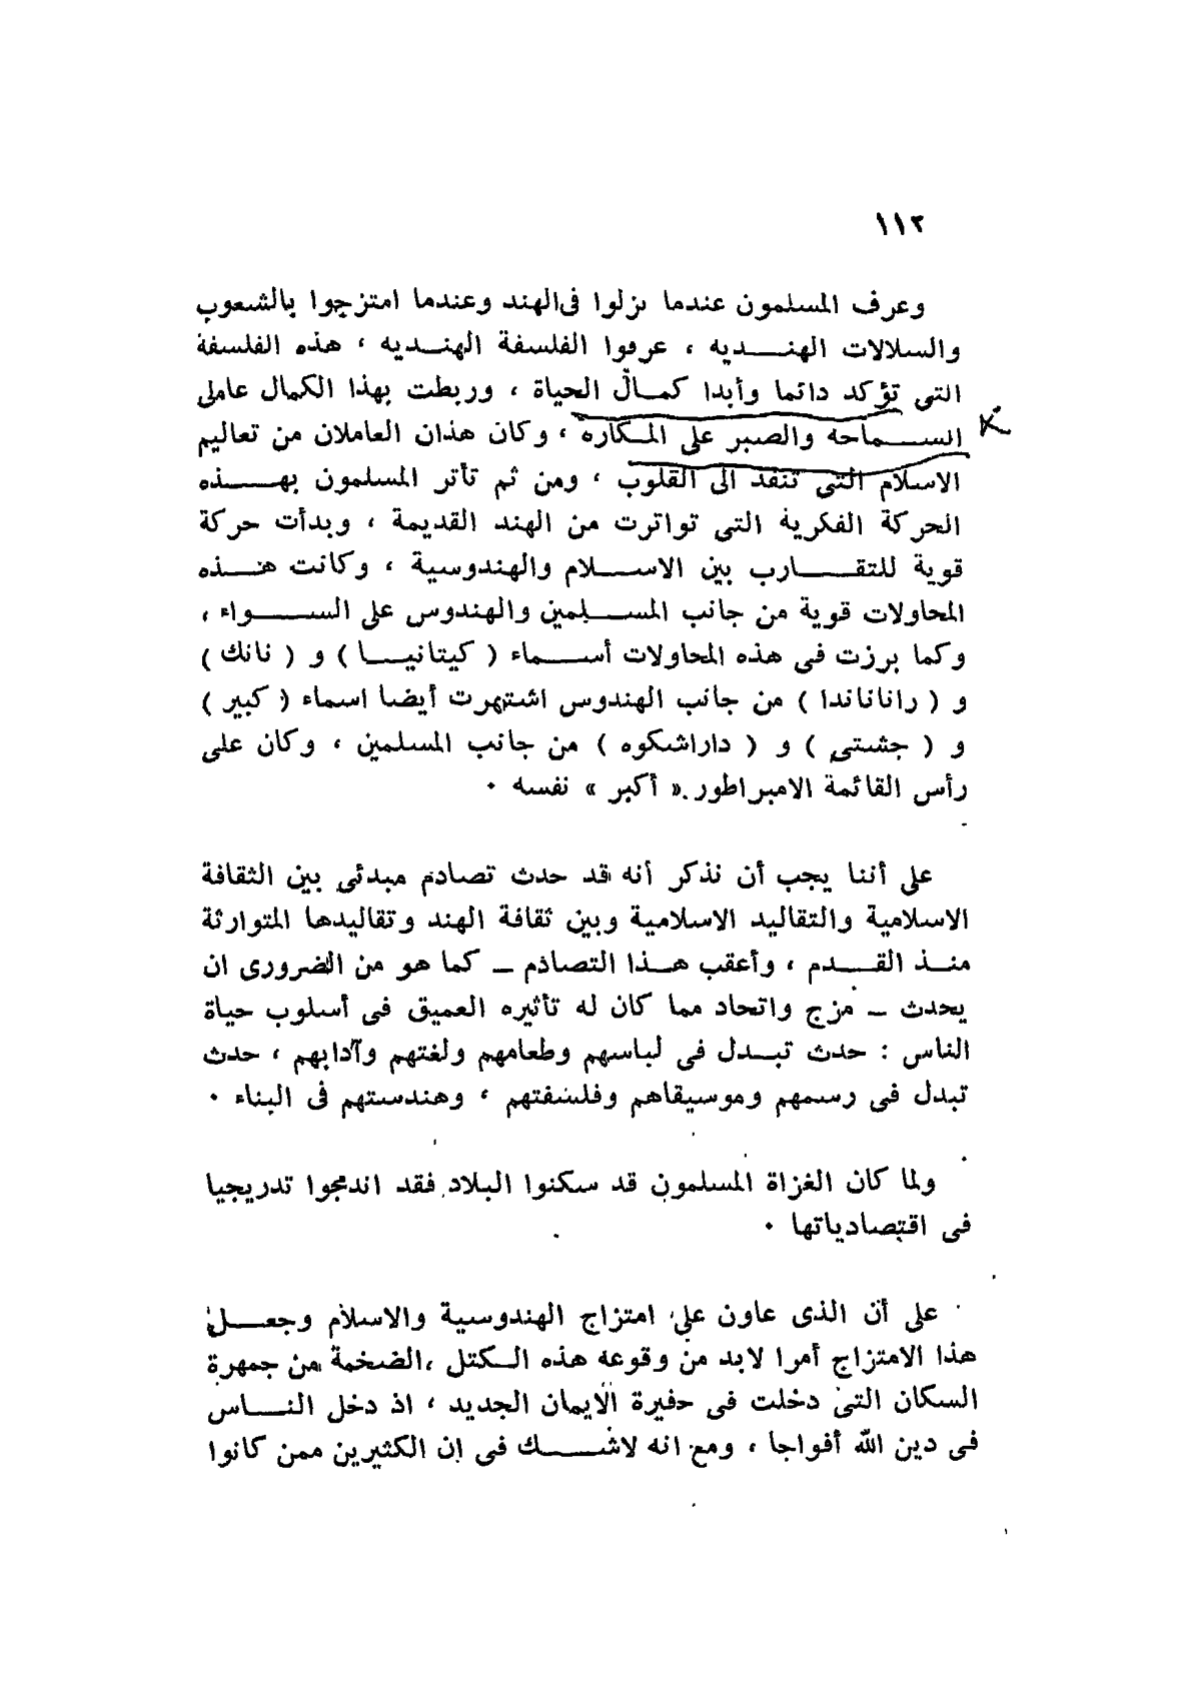 ١١٢
وعرف المسلمون عندما نزلوا فى الهند وعندما امتزجوا بالشعوب
والسلالات الهنديه ، عرفوا الفلسفة الهنديه ، هذه الفلسفة
التى تؤكد دائما وأبدا كمال الحياة ، وربطت بهذا الكمال عاملى
السماحه والصبر على المكاره ، وكان هذان العاملان من تعاليم
الاسلام التى تنفذ الى القلوب ، ومن ثم تأثر المسلمون بهذه
الحركة الفكرية التى تواترت من الهند القديمة ، وبدأت حركة
قوية للتقارب بين الاسلام والهندوسية ، وكانت هذه
المحاولات قوية من جانب المسلمين والهندوس على السواء ،
وكما برزت فى هذه المحاولات أسماء ( كيتانيا ) و ( نانك )
و ( راناناندا ) من جانب الهندوس اشتهرت أيضا اسماء ( كبير )
و ( جشتى ) و ( داراشكوه ) من جانب المسلمين ، وكان على
رأس القائمة الامبراطور « أكبر » نفسه ٠
على أننا يجب أن نذكر أنه قد حدث تصادم مبدئى بين الثقافة
الاسلامية والتقاليد الاسلامية وبين ثقافة الهند وتقاليدها المتوارثة
منذ القدم ، وأعقب هذا التصادم – كما هو من الضرورى ان
يحدث – مزج واتحاد مما كان له تأثيره العميق فى أسلوب حياة
الناس : حدث تبدل فى لباسهم وطعامهم ولغتهم وآدابهم ، حدث
تبدل فى رسمهم وموسيقاهم وفلسفتهم ، وهندستهم فى البناء ٠
ولما كان الغزاة المسلمون قد سكنوا البلاد فقد اندمجوا تدريجيا
فى اقتصادياتها ٠
على أن الذى عاون على امتزاج الهندوسية والاسلام وجعل
هذا الامتزاج أمرا لابد من وقوعه هذه الكتل الضخمة من جمهرة
السكان التى دخلت فى حفيرة الايمان الجديد ، اذ دخل الناس
فى دين الله أفواجا ، ومع انه لاشك فى ان الكثيرين ممن كانوا